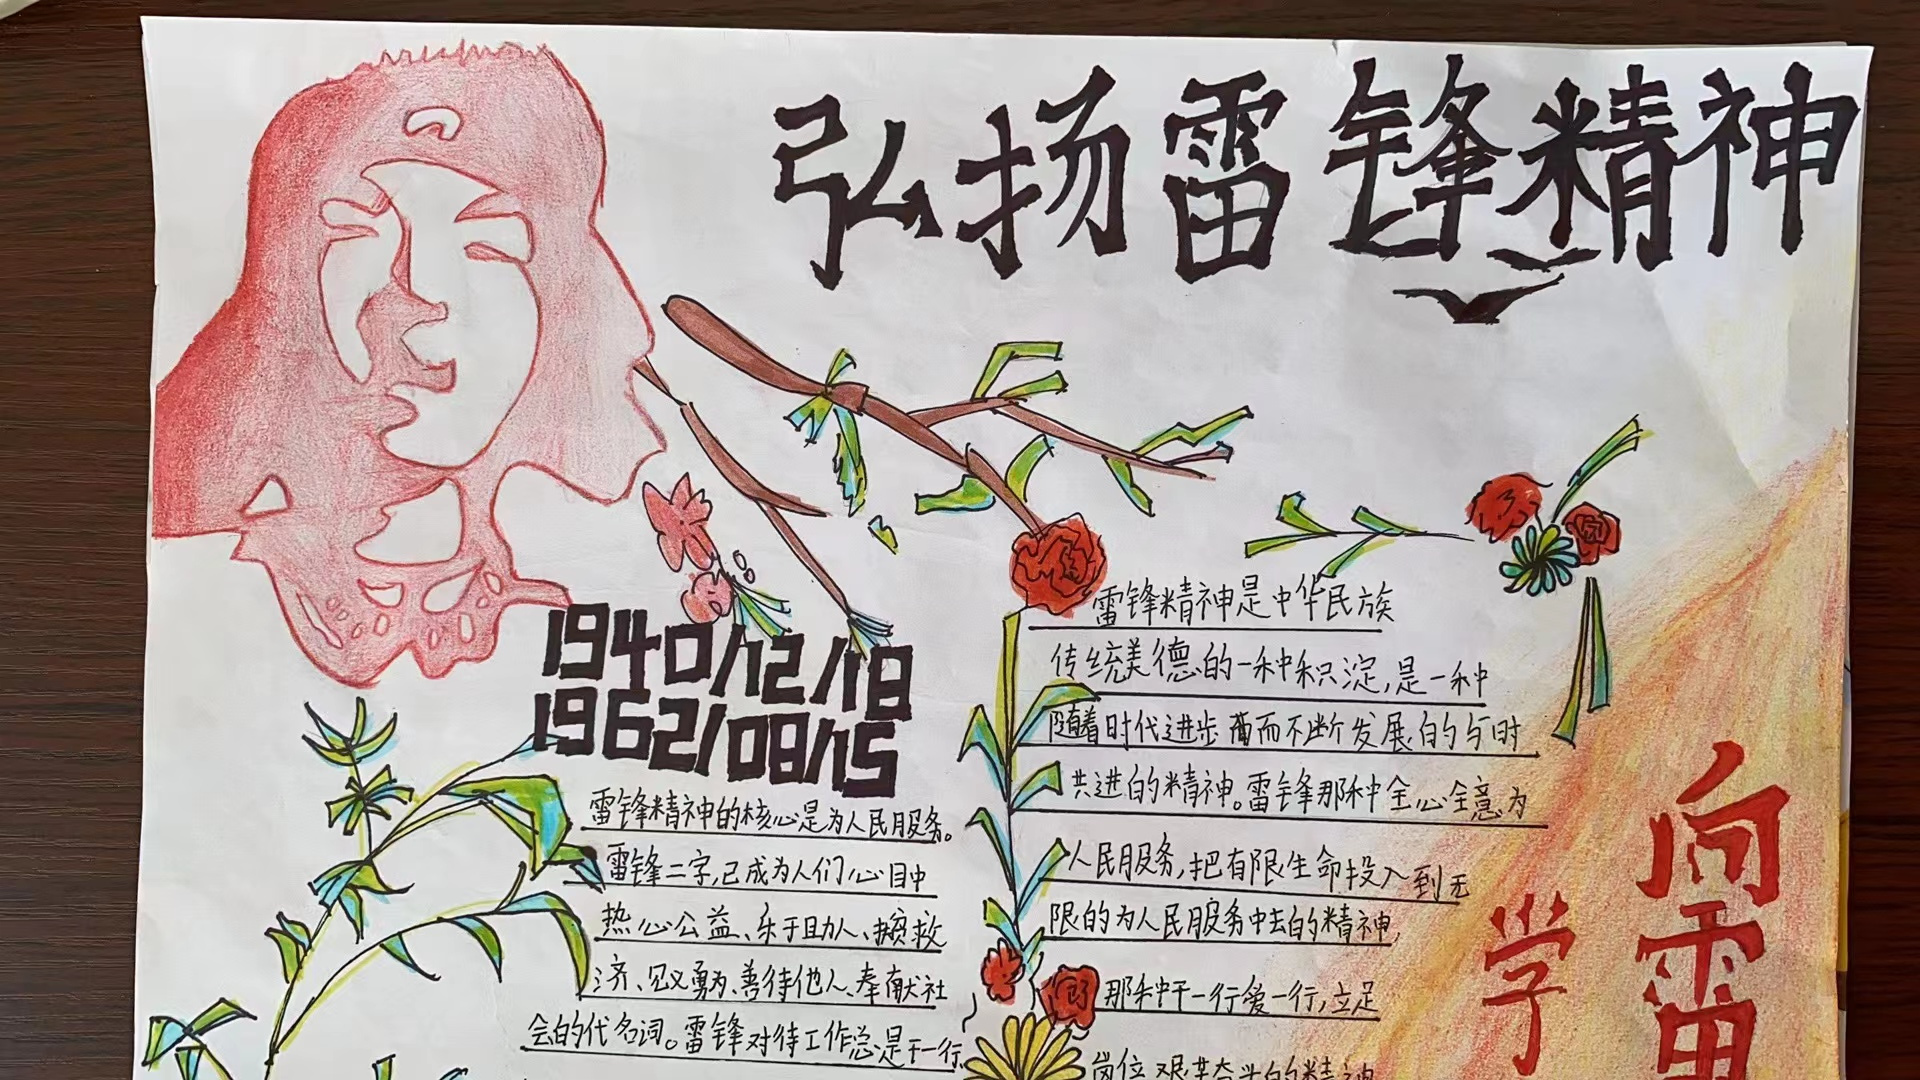 弘扬雷锋精神
1940/12/18
1962/08/15
雷锋精神的核心是为人民服务。
雷锋二字,已成为人们心目中
热心公益、乐于助人、扶贫救
济、见义勇为、善待他人、奉献社
会的代名词。雷锋对待工作总是干一行
雷锋精神是中华民族
传统美德的一种积淀,是一种
随着时代进步而不断发展的与时
共进的精神。雷锋那种全心全意为
人民服务,把有限生命投入到无
限的为人民服务中去的精神,
那种干一行爱一行,立足
岗位艰苦奋斗的精神
向雷
学